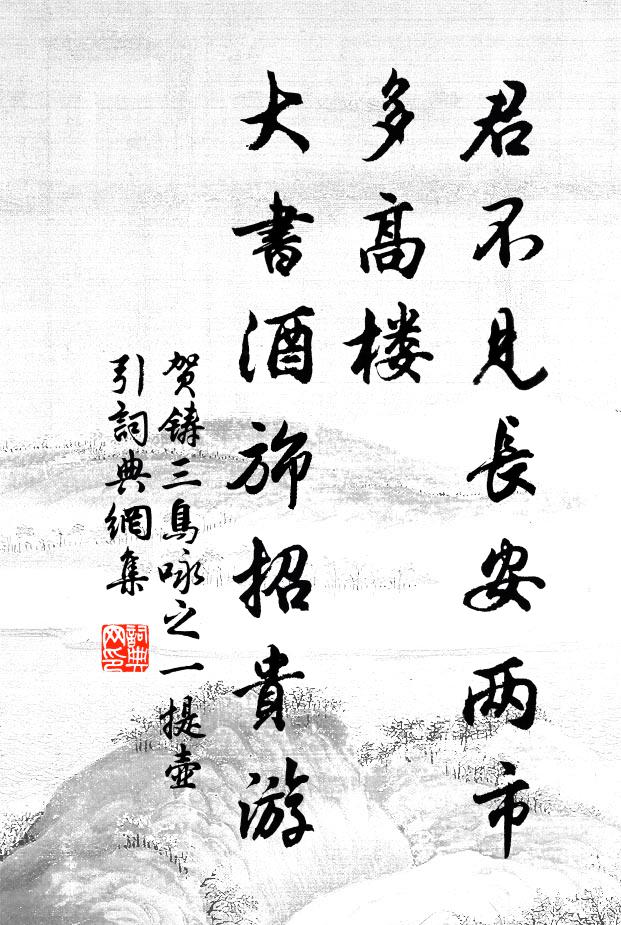 君不见長安两市
多高楼
大書酒旆招貴游
贺铸三鳥咏之一提壶
引詞典網集
詞典网印